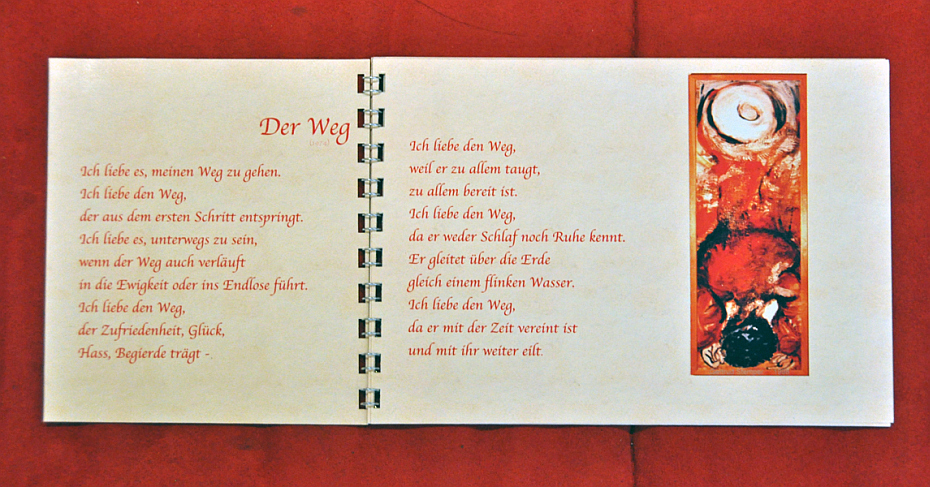 Der Weg
Ich liebe es, meinen Weg zu gehen.
Ich liebe den Weg,
der aus dem ersten Schritt entspringt.
Ich liebe es, unterwegs zu sein,
wenn der Weg auch verläuft
in die Ewigkeit oder ins Endlose führt.
Ich liebe den Weg,
der Zufriedenheit, Glück,
Hass, Begierde trägt -.
Ich liebe den Weg,
weil er zu allem taugt,
zu allem bereit ist.
Ich liebe den Weg,
da er weder Schlaf noch Ruhe kennt.
Er gleitet über die Erde
gleich einem flinken Wasser.
Ich liebe den Weg,
da er mit der Zeit vereint ist
und mit ihr weiter eilt.